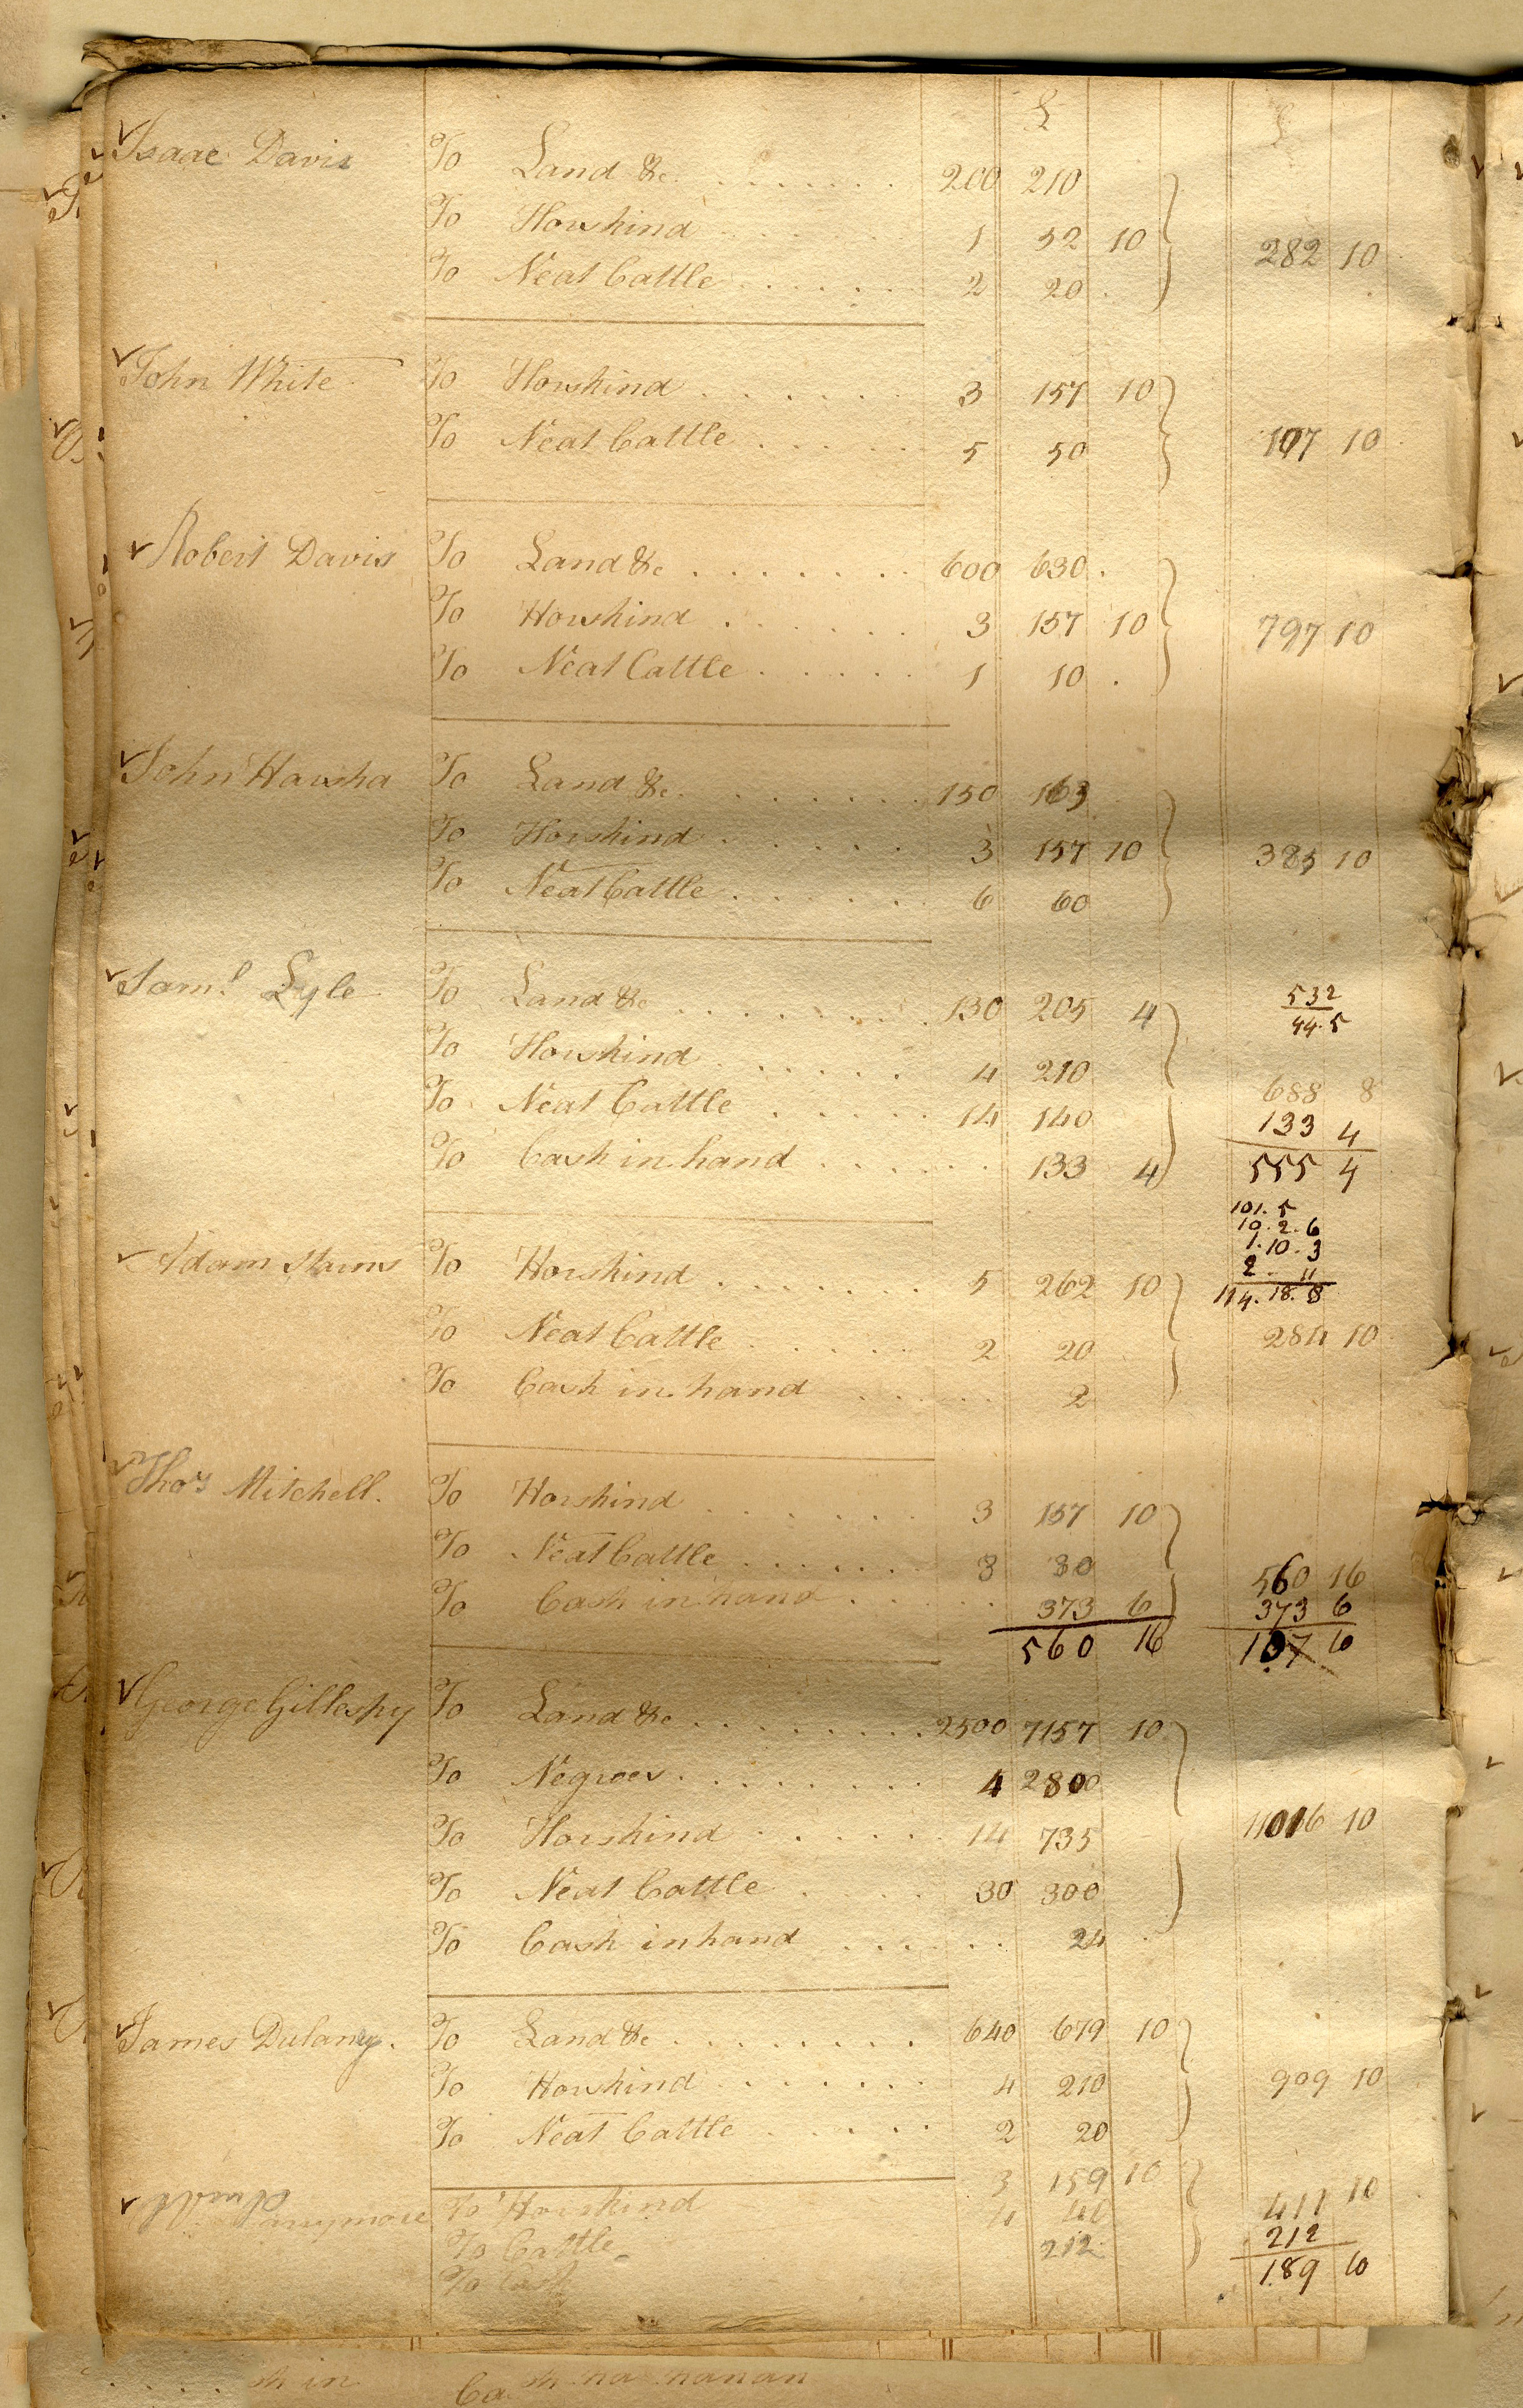 £ £
Isaac Davis To Land &c. 200 210
To Horskind 1 52 10 282 10
To Neat Cattle 2 20
John White To Horskind 3 157 10
To Neat Cattle 5 50 107 10
Robert Davis To Land &c 600 630
To Horskind 3 157 10 797 10
To Neat Cattle 1 10
John Harsha To Land &c. 150 163
To Horskind 3 157 10 385 10
To Neat Cattle 6 60
Saml. Lyle To Land &c 130 205 4
532
44.5
To Horskind 4 210
688 8
To Neat Cattle 14 140
133 4
To Cash in hand 133 4
555 4
101. 5
10. 2. 6
1. 10. 3
2. 11
114. 18. 8
Adam Starns To Horskind 5 262 10
To Neat Cattle 2 20 284 10
To Cash in hand 2
Thos Mitchell. To Horskind 3 157 10
To Neat Cattle 3 30 560 16
To Cash in hand 373 6 373 6
560 16 187 10
George Gillespy To Land &c 2500 7157 10
To Negroes 4 2800
To Horskind 14 735 11016 10
To Neat Cattle 30 300
To Cash in hand 24
James Dulany. To Land &c 640 679 10
To Horskind 4 210 909 10
To Neat Cattle 2 20
To Horskind 3 159 10 411 10
To Cattle 4 40 212
To Cash 212 189 10